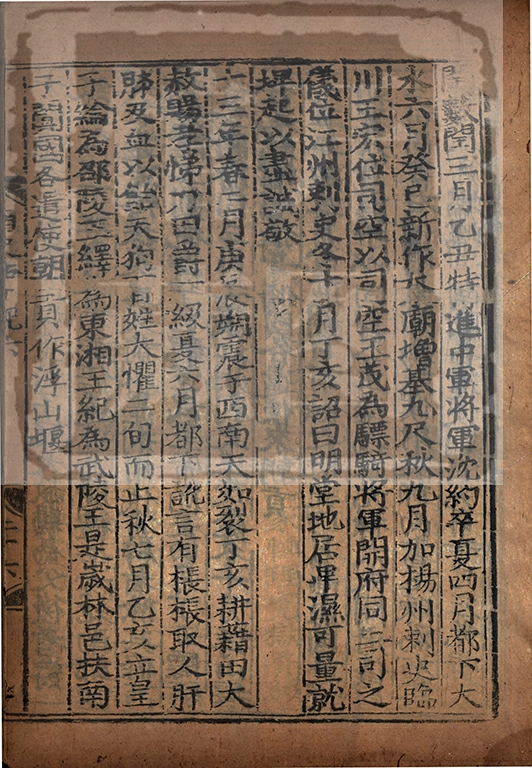 穀閏三月乙丑特進中軍將軍沈約卒夏四月都下大
水六月癸巳新作太廟増基九尺秋九月加揚州刺史臨
川王宏位司空以司空王茂為驃騎將軍開府同三司之
儀位江州刺史冬十月丁亥詔曰明堂地居卑濕可量就
埤起以盡誠敬
十三年春二月庚辰朔震于西南天如裂丁亥耕藉田大
赦賜孝悌力田爵一級夏六月都下訛言有棖棖取人肝
肺及血以飴天狗百姓大懼二旬而止秋七月乙亥立皇
子綸為邵陵王繹為東湘王紀為武陵王是歲林邑扶南
于闐國各遣使朝貢作浮山堰
二十六